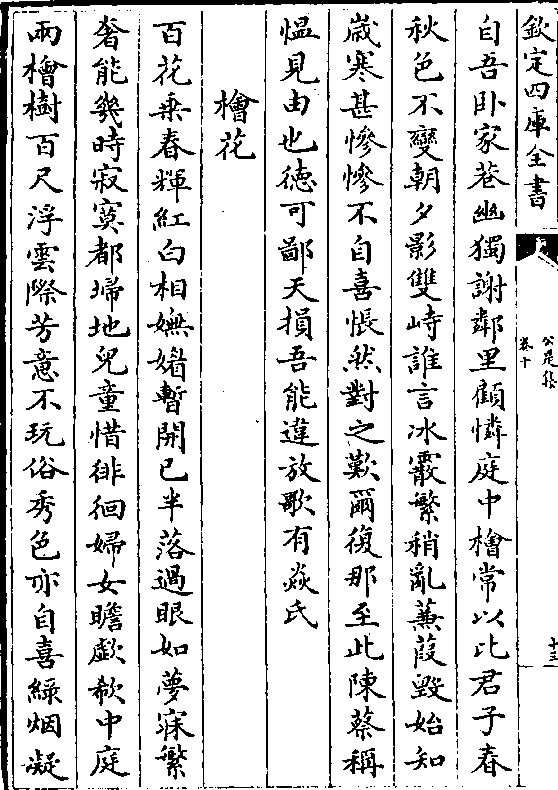 欽定四庫全書
公是集
卷十
十三
自吾卧家巷幽獨謝鄰里顧憐庭中檜常以比君子春
秋色不變朝夕影雙峙誰言冰霰繁稍亂蒹葭毀始知
歳寒甚慘慘不自喜悵然對之歎爾復那至此陳蔡稱
愠見由也徳可鄙天損吾能違放歌有焱氏
檜花
百花乗春輝紅白相嫵媚暫開已半落過眼如夢寐繁
奢能幾時寂寞都埽地兒童惜徘徊婦女瞻歔欷中庭
兩檜樹百尺浮雲際芳意不玩俗秀色亦自喜緑烟凝